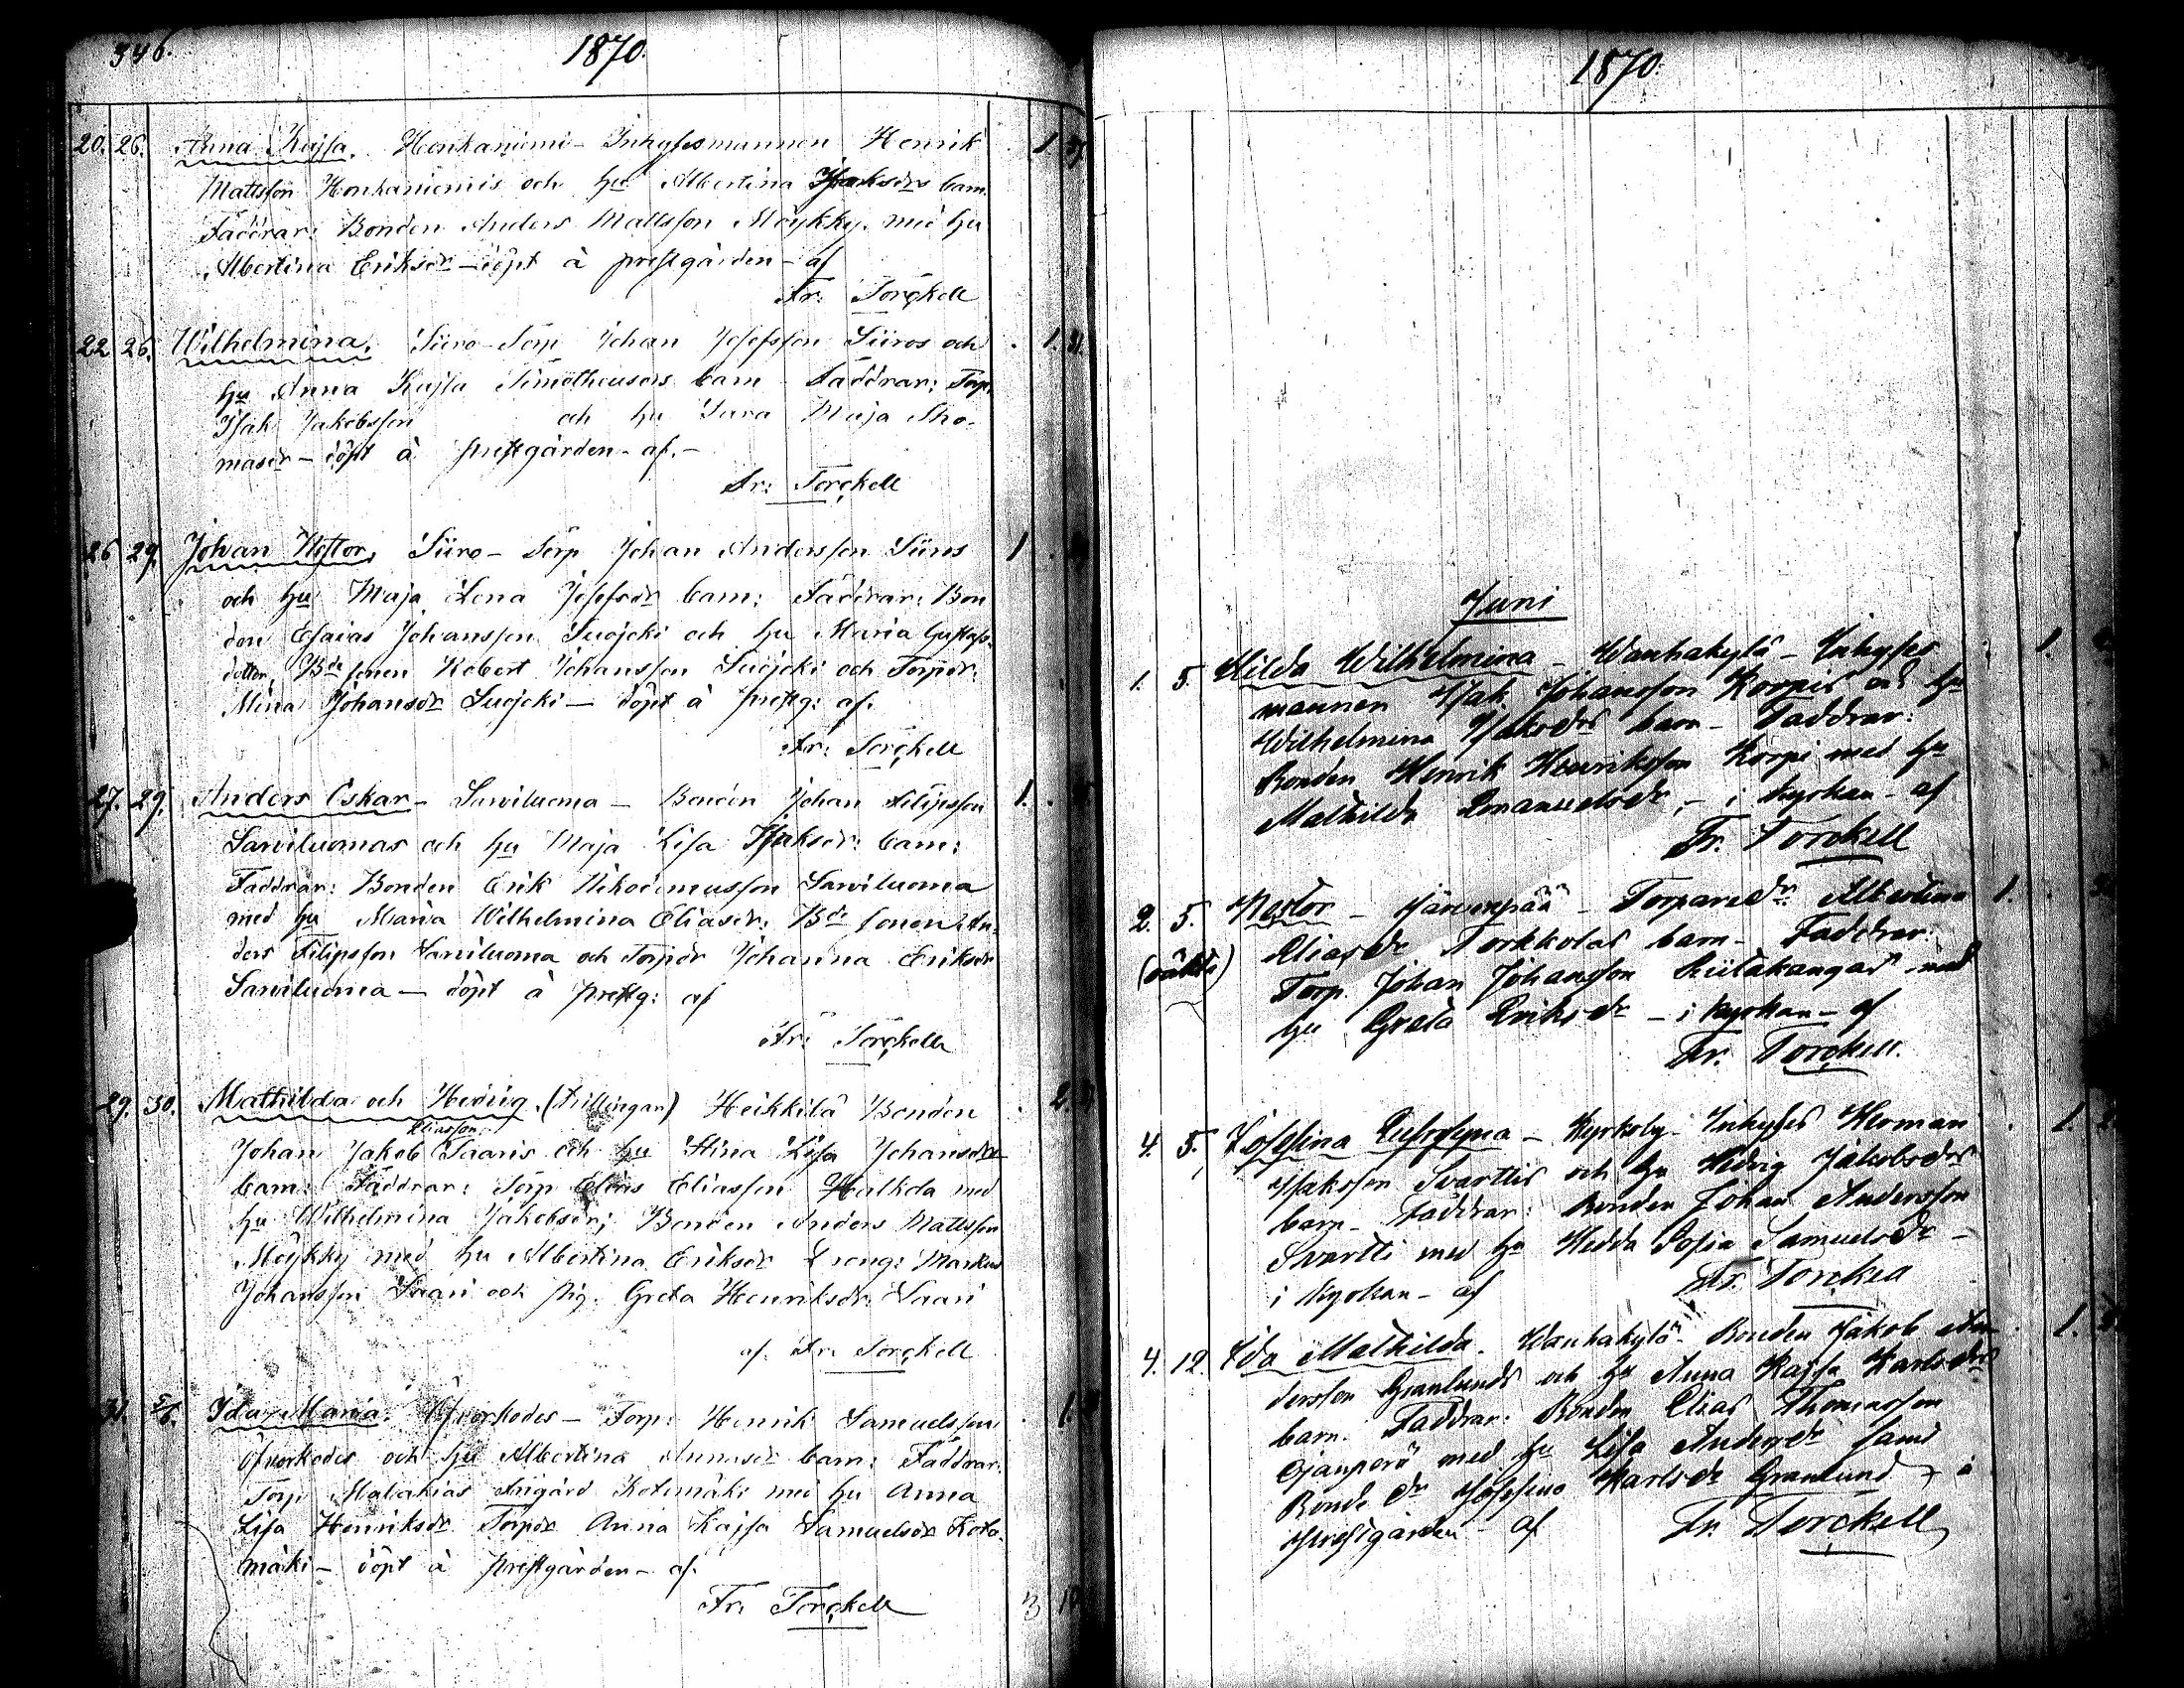 346.
1870.
20. 26. Anna Kajsa. Honkaniemi - Inhysesmannen Henrik 1
Mattsson Honkaniemis och hu Albertina Isaksdrs barn.
Faddrar: Bonden Anders Mattsson Möykky med hu
Albertina Eriksdr - döpt à prestgården - af
Fr: Torckell
22 26. Wilhelmina. Siiro - Torp Johan Josefsson Siiros och 1. 31.
hu Anna Kajsa Timotheusdrs barn - Faddrar: Torp.
Isak Jakobsson och hu Sara Maja Tho-
masdr - döpt à prestgården - af. -
Fr: Torckell
26 29. Johan Nestor, Siiro - Torp Johan Andersson Siiros 1
och hu Maja Lena Josefsdr barn: Faddrar: Bon
den Esaias Johansson Suojoki och hu Maria Gustafs-
dotter, Bde sonen Robert Johansson Suojoki och Torpdr:
Mina Johansdr Suojoki - döpt à prestg: af.
Fr: Torckell
27. 29. Anders Oskar - Sarviluoma - Bonden Johan Filipsson 1.
Sarviluomas och hu Maja Lisa Isaksdr: barn:
Faddrar: Bonden Erik Nikodemusson Sarviluoma
med hu Maria Wilhelmina Eliasdr: Bde sonen An-
ders Filipsson Sarviluoma och Torpdr Johanna Eriksdr
Sarviluoma - döpt à prestg: af
Fr: Torckell
29. 30. Mathilda och Hedvig (trillingar) Heikkilä Bonden 2.
Eliasson
Johan Jakob Saaris och hu Stina Lisa Johansdrs
barn: Faddrar: Torp Elias Eliasson Halkola med
hu Wilhelmina Jakobsdr; Bonden Anders Mattsson
Möykky med hu Albertina Eriksdr Dreng: Markus
Johansson Saari och pig. Greta Henriksdr Saari
af. Fr: Torckell
31. 5/6. Ida Maria. Öfverkodes - Torp: Henrik Samuelsson 1.
Öfverkodes och hu Albertina barn: Faddrar:
Torp Malakias Frigård Kotomäki med hu Anna
Lisa Henriksdr Torpdr Anna Kajsa Samuelsdr Koto-
mäki - döpt à prestgården - af.
Fr: Torckell
3 10
1870.
Juni
1. 5. Hilda Wilhelmina - Wanhakylä - Inhyses 1.
mannen Isak Johansson Korpis och hu
Wilhelmina Isaksdrs barn - Faddrar:
Bonden Henrik Henriksson Korpi med hu
Mathilda Emanuelsdr, - i kyrkan - af
Fr. Torckell
2. 5. Nestor - Järvenpää - Torparedr Albertina 1.
(oäkta) Eliasdr Torkkolas barn - Faddrar:
Torp. Johan Johansson Riitakangas med
hu Greta Eriksdr - i kyrkan - af
Fr. Torckell.
4. 5. Josefina Eufrosyna - Kyrkoby - Inhyses Herman 1.
Isaksson Svarttis och hu Hedvig Jakobsdrs
barn - Faddrar: Bonden Johan Andersson
Svartti med hu Hedda Sofia Samuelsdr -
i kyrkan - af Fr. Torckell
4. 12. Ida Mathilda. Wanhakylä - Bonden Jakob An- 1.
dersson Granlunds och hu Anna Kajsa Karlsdrs
barn. Faddrar: Bonden Elias Thomasson
Ojanperä med hu Lisa Andersdr samt
Bonde dr Josefina Karlsdr Granlund à
prestgården - af Fr. Torckell